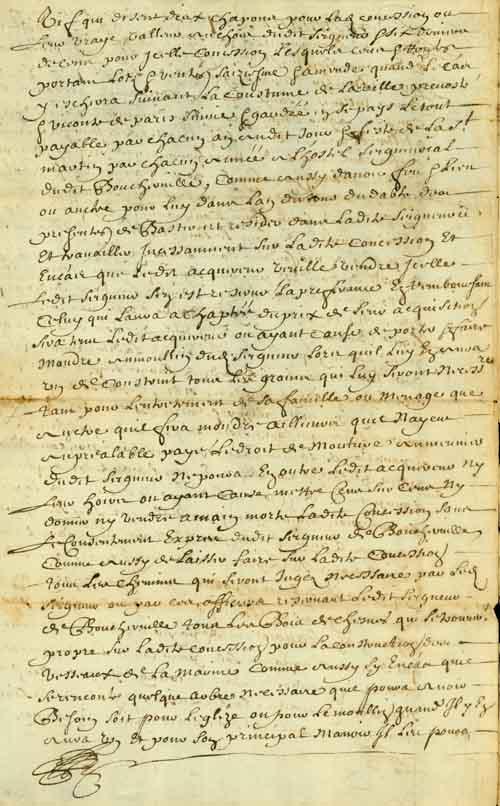 Vif qui disent deux chapons pour lad concession ou
leur vraye valleur au choix dudit Seigneur
de Cens pour Icelle Concession Lesquels cens et Rentes
portant Lots et ventes saizine et amende quand le cas
y eschera suivant La Coustume de La ville prevosté
et viconté de paris suivie et gardée en ce pays Le tout
payable par chacun an audit Jour et feste de La St
martin par chacune année a L'hostel Seigneurial
dudit Boucherville, Comme aussy d'avoir feu et Lieu
ou autre pour Luy dans L'an du Jour du datte des
presentes de Bastir et resider dans Ladite Seigneurie
Et travailler Incessamment sur Ladite Concession Et
En cas que Ledit acquereur veuille vendre Icelle
Ledit Seigneur sera est retenir La preferance En remboursant
Celuy qui L'aura achaptée du prix de son acquisition
sera tenu Ledit acquereur ou ayant Cause de porter et faire
moudre au moullin dud. Seigneur Lors quil Luy En aura
un de Construit tous Les grains qui Luy seront necessres
tant pour L'entretenement de sa famille ou menage que
autre quil fera moudre ailleurs que N'ayent
au prealable payé Le droit de mouture au meunier
dudit Seigneur Ne pourra En outre Ledit acquereur ny
Leurs hoirs ou ayant Cause mettre Cens sur Cens Ny
donner ny vendre a main morte Ladite Concession sans
Le Consentement Exprès dudit Seigneur de Boucherville
Comme aussy de Laisser faire sur Ladite Concession
tous Les Chemins qui seront Jugez Necessaire par led.
Seigneur ou par ces officiers reservant Ledit Seigneur
de Boucherville tous Les Bois de chesnes qui se trouveront
propre sur Ladite Concession pour La construction des
vesseaux de La Marine Comme aussy En cas que
se rencontre quelque arbre Necessaire que pourra avoir
Besoin soit pour L'eglize ou pour Le moullin quand Il y En
aura un Et pour son principal Manoir Il Les poura